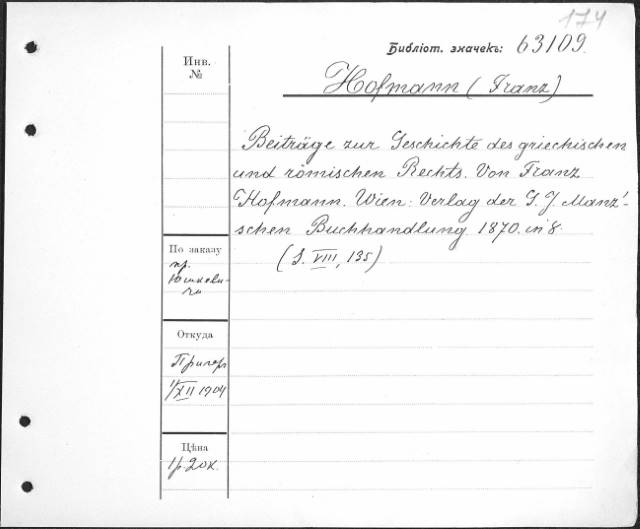 174
Библіот. значекъ: 63109.
Инв.
№
Hofmann (Franz)
Beiträge zur Geschichte des griechischen
und römischen Rechts. Von Franz
Hofmann. Wien: Verlag der G. J. Manz'-
schen Buchhandlung 1870. in 8.
(S. VIII, 135)
По заказу
пр.
Юшкеви-
ча
Откуда
Пригер
1/XII 1904
Цѣна
1р. 20к.